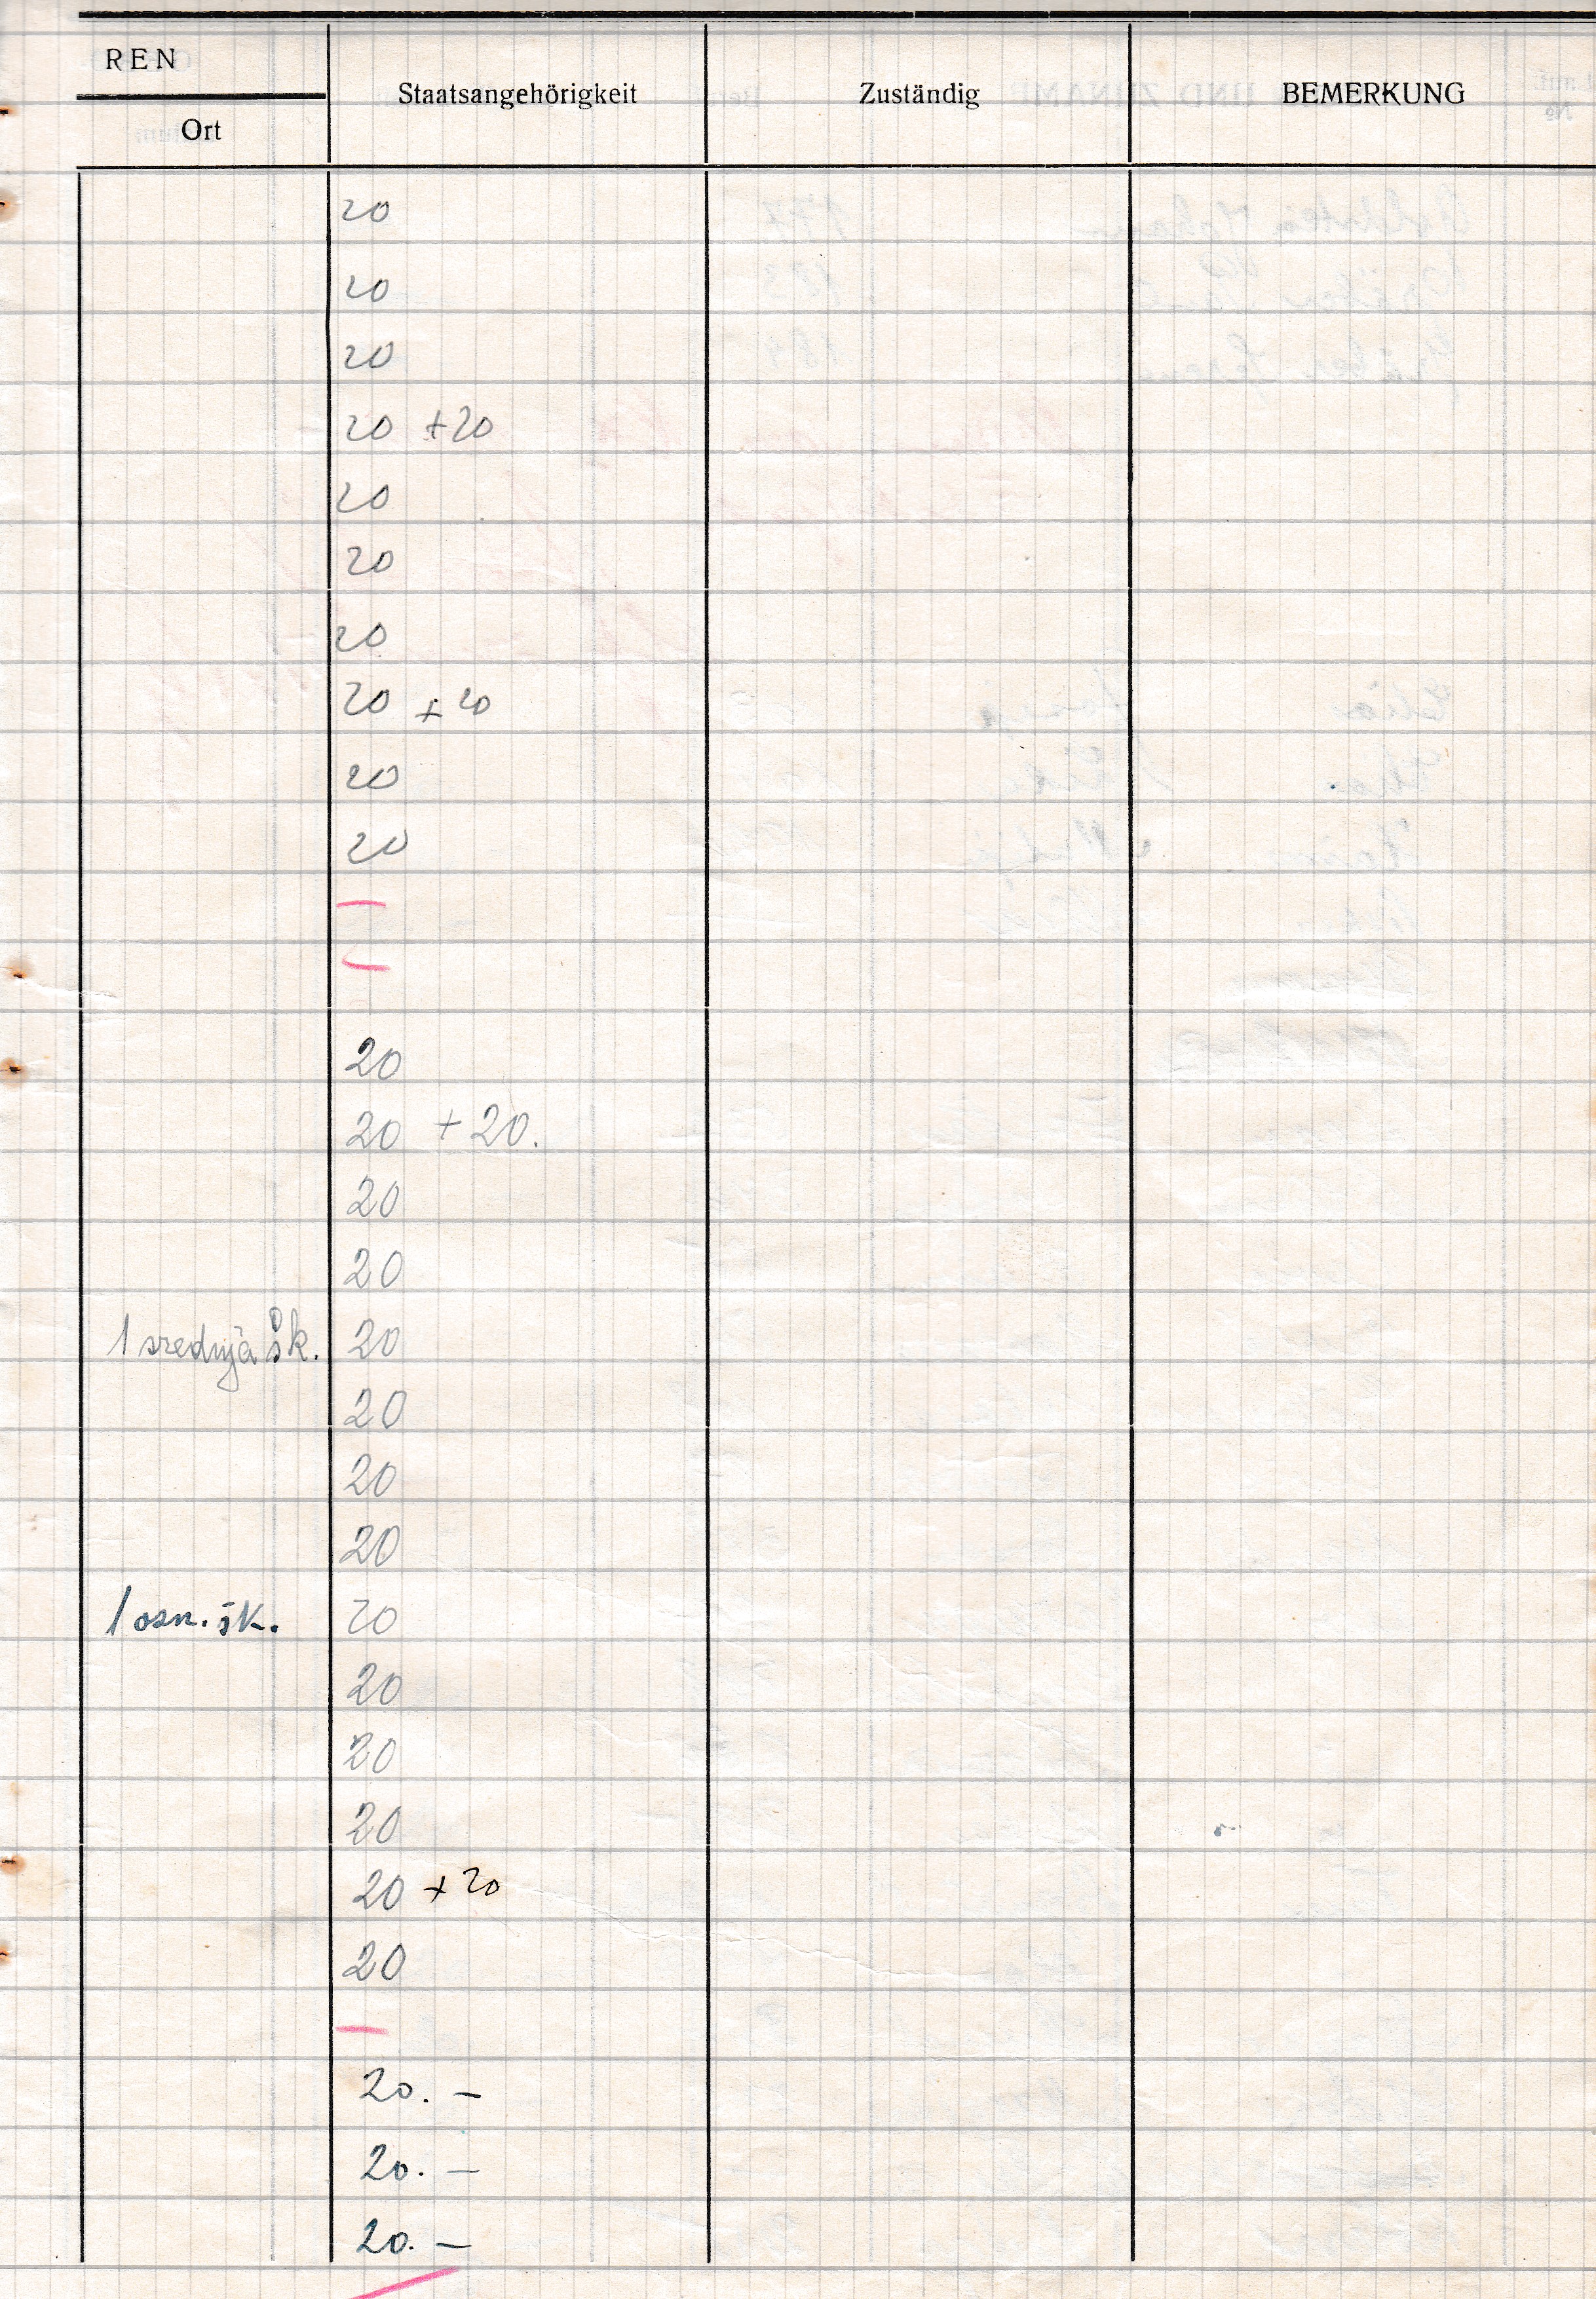 REN
Ort
Staatsangehörigkeit
Zuständig
BEMERKUNG
20
20
20
20 +20
20
20
20
20 + 20
20
20
—
—
20
20 + 20.
20
20
1 srednja šk. 20
20
20
20
1 osn. šk. 20
20
20
20
20 + 20
20
—
20. —
20. —
20. —